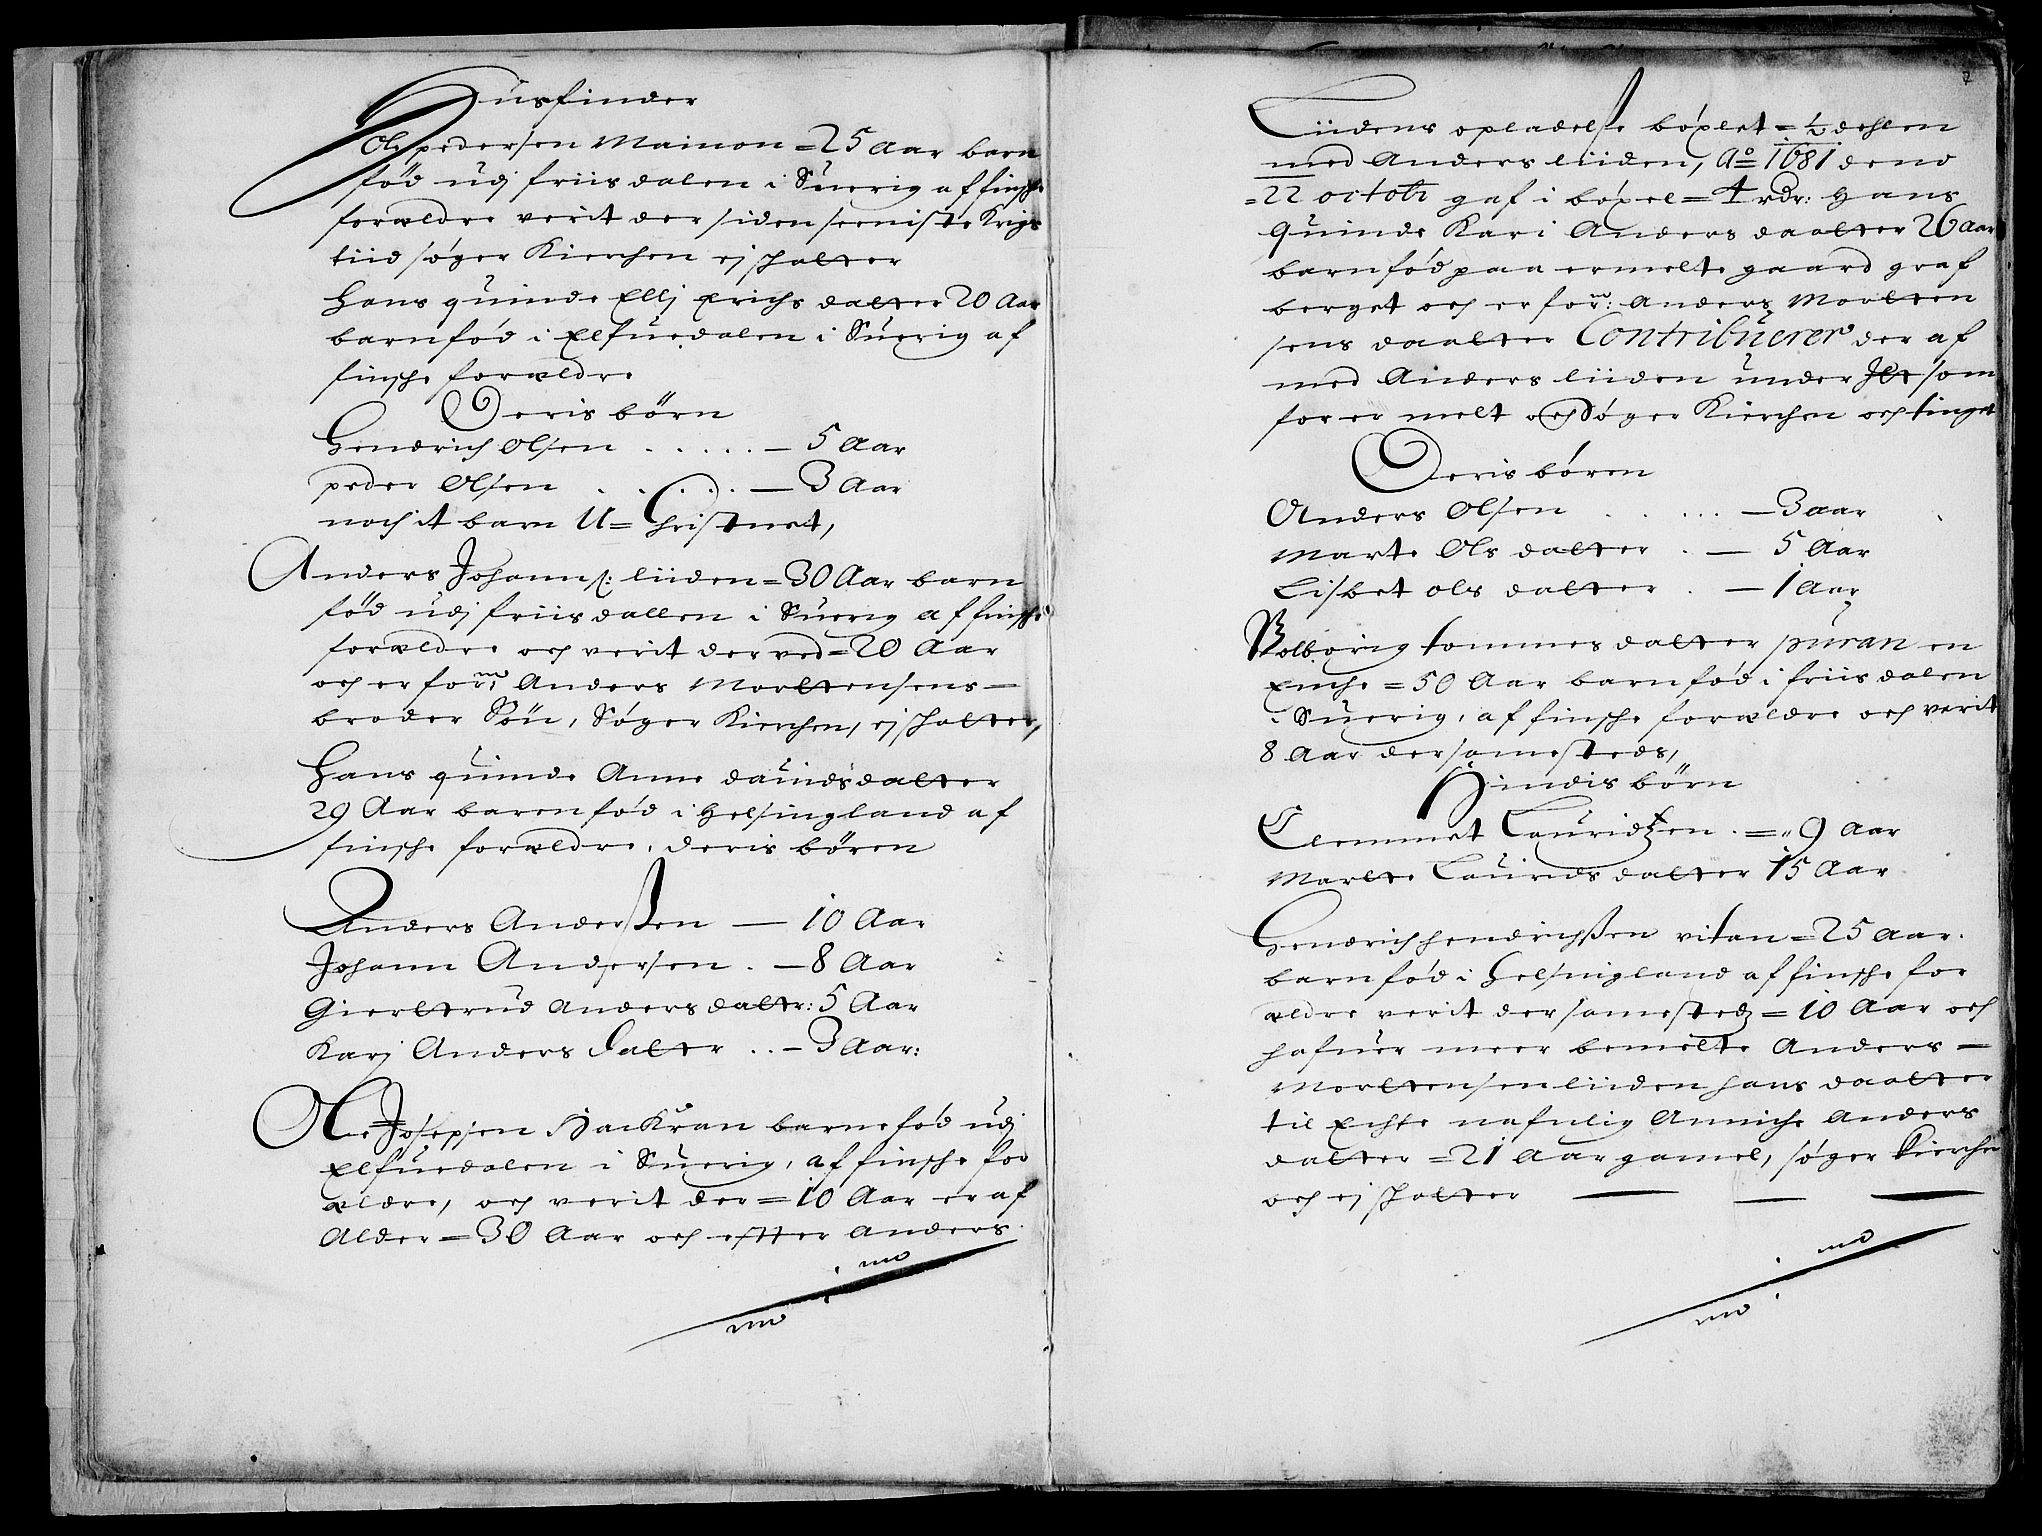 Husfinder
Ole pedersen Mainon = 25 Aar barn
fød udj friisdalen i Suerig af finsche
forældre verit der siden seeniste Krigs
tiid søger Kierchen ej schatter
Hans quinde Ellj Erichs datter 20 Aar
barnfød i Elfuedalen i Suerig af
finsche forældre
Deris børn
Hendrich Olsen . . . . . — 5 Aar
peder Olsen . . . . . — 3 Aar
noch it barn U=Christnet,
Anders Johans: liiden = 30 Aar barn
fød udj friisdallen i Suerig af finsche
forældre och verit der ved = 20 Aar
och er form: Anders Mortensens —
broder Søn, Søger Kierchen, ej schatter,
Hans quinde Anne dauids datter
29 Aar baren fød i Helsingland af
finsche forældre, deris børen
Anders Anderssen — 10 Aar
Johann Andersen . — 8 Aar
Giertrud Anders datr: 5 Aar
Karj Anders datter . . — 3 Aar:
Ole Josepsen Hackran barnefød udj
Elfuedalen i Suerig, af finsche for
ældre, och verit der = 10 Aar er af
Alder = 30 Aar och efter Anders
7
Liidens opladelsse bøxlet = ½ dehlen
med Anders liiden, Ao 1681 dend
= 22 octobr gaf i bøxel = 4 rdr: Hans
Quinde Kari Anders daatter 26 Aar
barnfød paa ermelte gaard graf
berget och er form: Anders Morten
sens daatter Contribuerer der af
med Anders liiden under Jtt som
for er melt och Søger Kierchen och tinget
Deris børen
Anders Olsen . . . . . — 3 aar
Marte Ols datter . — 5 Aar
Lisbet ols datter . — 1 Aar
Volborig tommes datter puran en
Enche = 50 Aar barnfød i friisdalen
i Suerig, af finsche forældre och verit
8 Aar dersamesteds,
Hindis børn
Clemmet Lauridtzen . = 9 Aar
Marte Laurids datter 15 Aar
Hendrich hendrichssen vitan = 25 aar.
barnfød i Helsingland af finsche for
ældre verit dersamestedz = 10 Aar och
hafuer meer bemelte Anders —
Mortensen liiden hans daatter
til Echte nafnlig Anniche Anders
datter = 21 Aar gamel, søger Kierchen
och ej schatter — — —